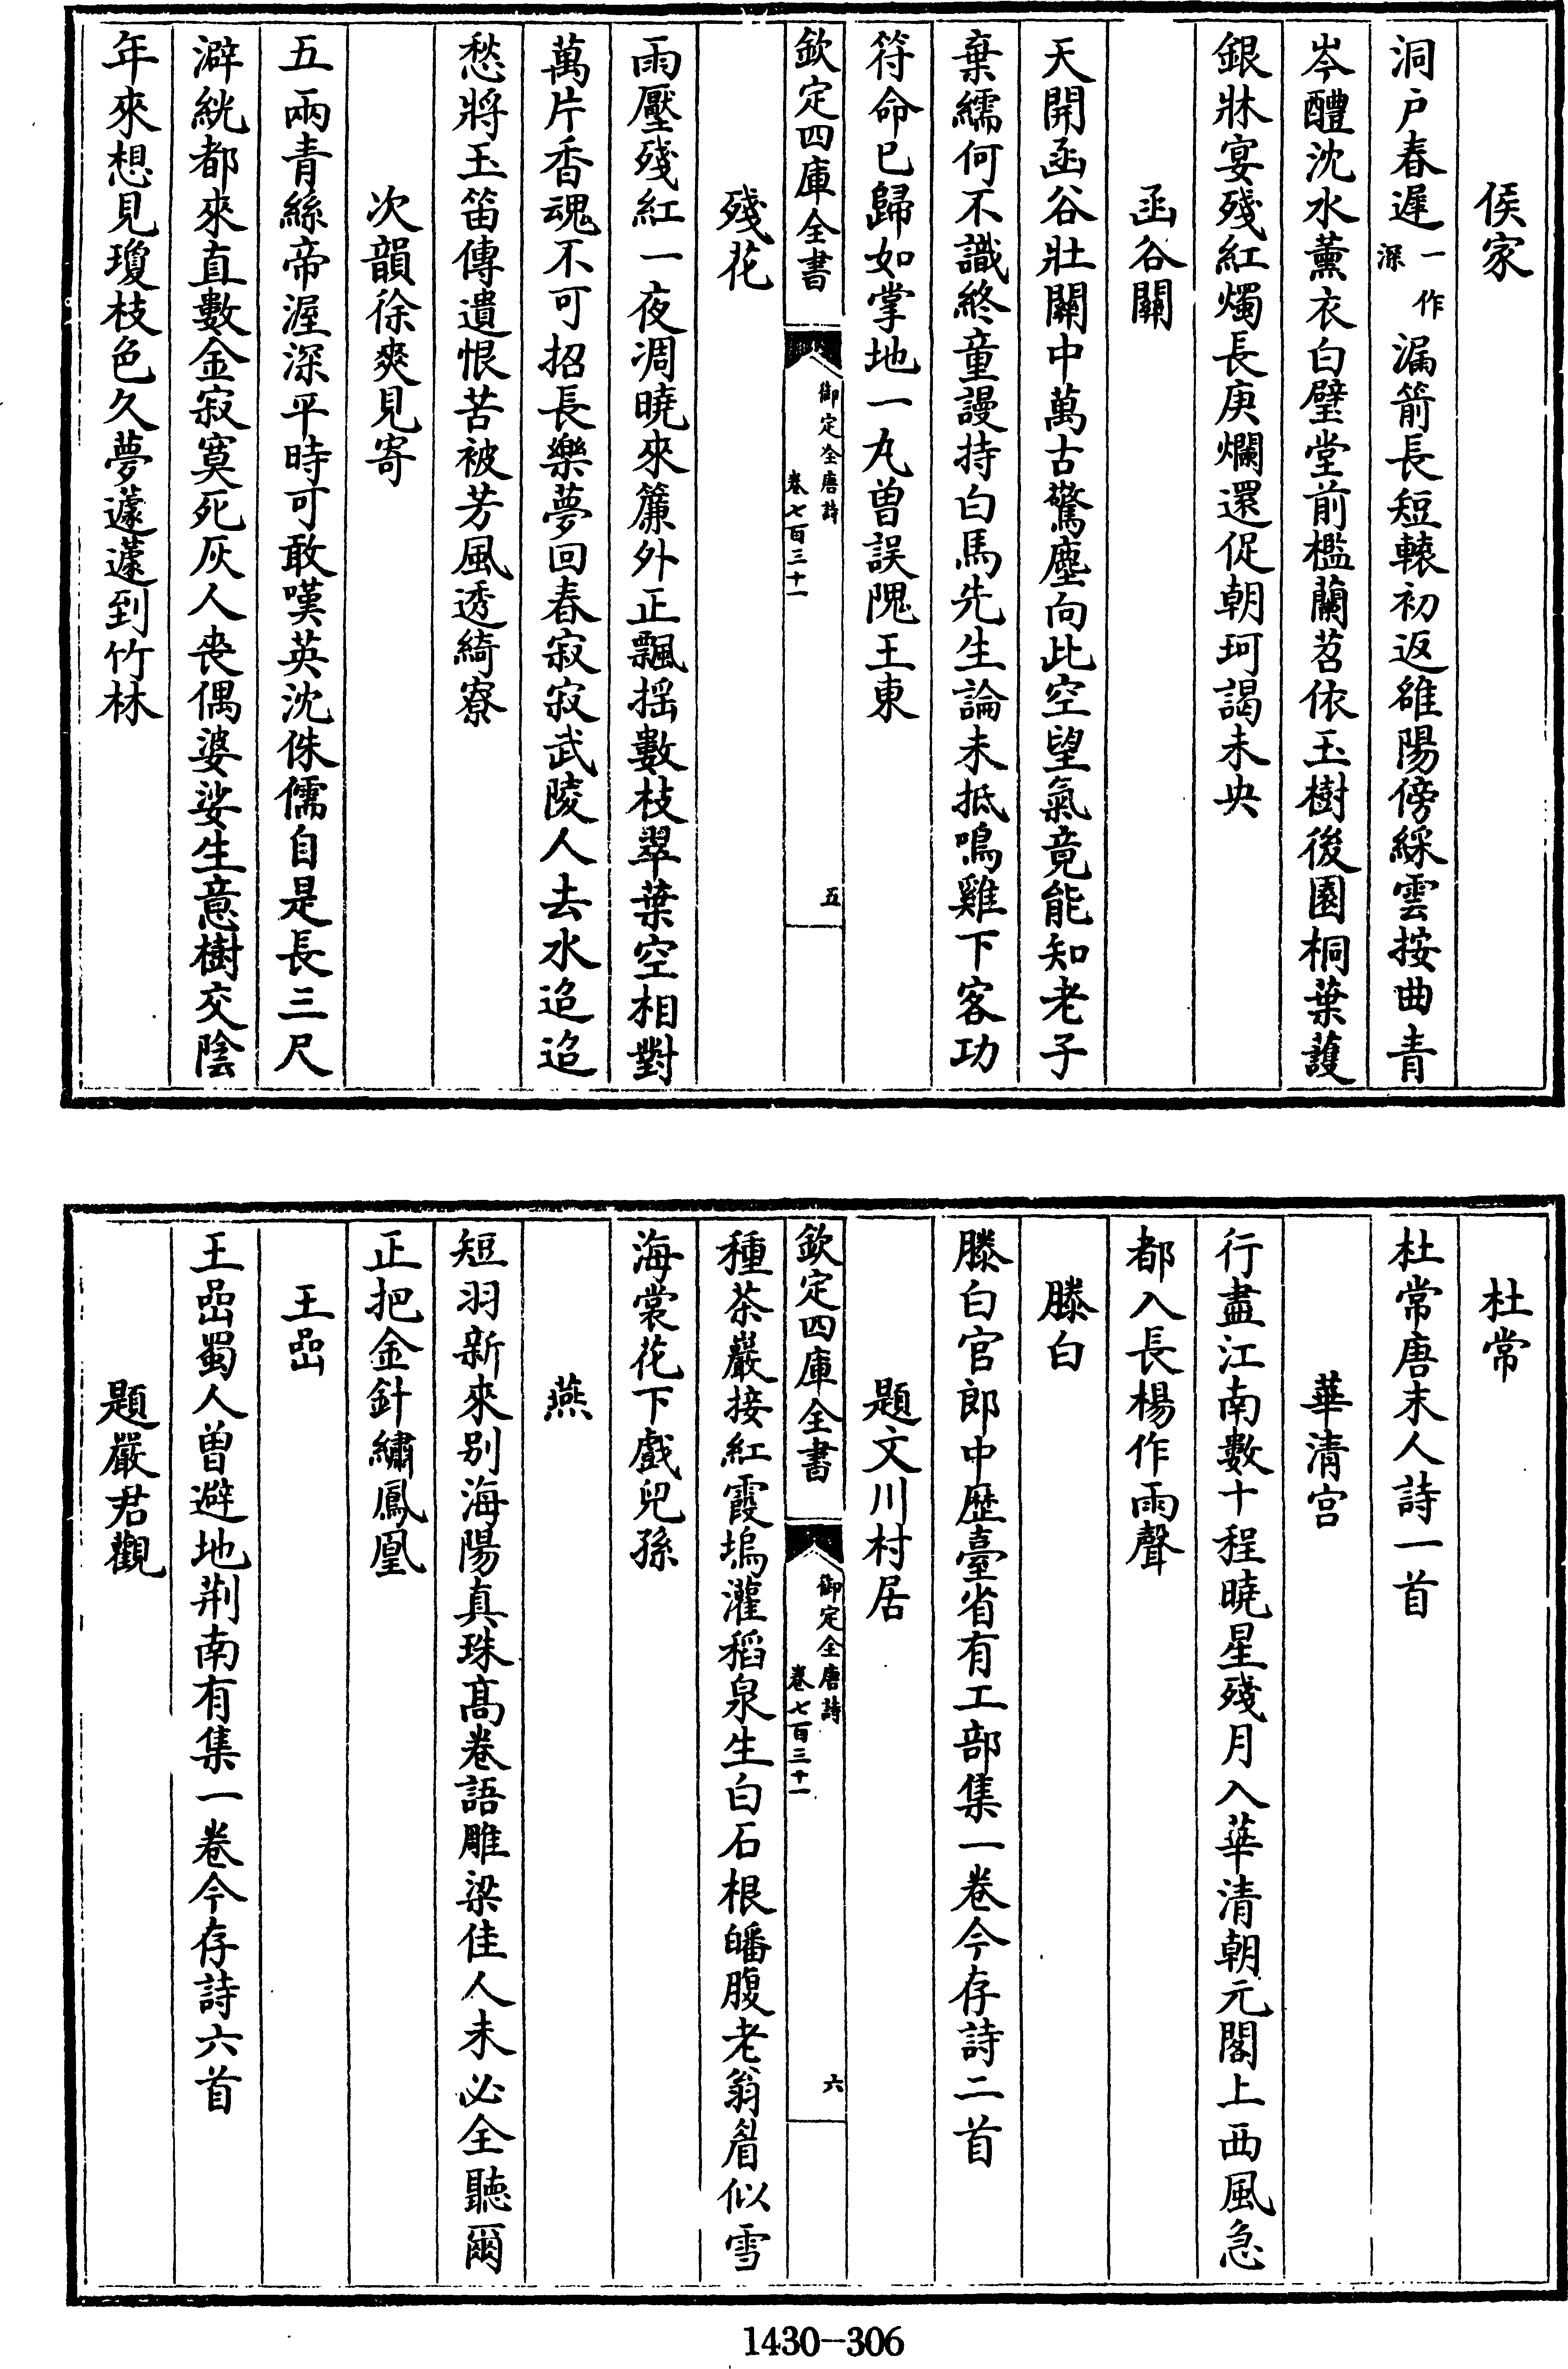 侯家
洞户春遲一作深漏箭長短轅初返雒陽傍綵雲按曲青
岑醴沈水薰衣白璧堂前檻蘭苕依玉樹後園桐葉護
銀牀宴殘紅燭長庚爛還促朝珂謁未央
函谷關
天開函谷壯關中萬古驚塵向此空望氣竟能知老子
棄繻何不識終童謾持白馬先生論未抵鳴雞下客功
符命已歸如掌地一丸曾誤隗王東
欽定四庫全書
御定全唐詩
卷七百三十一
五
殘花
雨壓殘紅一夜凋曉來簾外正飄揺數枝翠葉空相對
萬片香魂不可招長樂夢回春寂寂武陵人去水迢迢
愁將玉笛傳遺恨苦被芳風透綺寮
次韻徐爽見寄
五兩青絲帝渥深平時可敢嘆英沈侏儒自是長三尺
澼絖都來直數金寂寞死灰人喪偶婆娑生意樹交陰
年來想見瓊枝色久夢蘧蘧到竹林
杜常
杜常唐末人詩一首
華清宫
行盡江南數十程曉星殘月入華清朝元閣上西風急
都入長楊作雨聲
滕白
滕白官郎中歴臺省有工部集一卷今存詩二首
題文川村居
欽定四庫全書
御定全唐詩
卷七百三十一
六
種茶巖接紅霞塢灌稻泉生白石根皤腹老翁眉似雪
海棠花下戲兒孫
燕
短羽新來别海陽真珠高卷語雕梁佳人未必全聽爾
正把金針繡鳳凰
王嵒
王嵒蜀人曽避地荆南有集一卷今存詩六首
題嚴君觀
1430-306